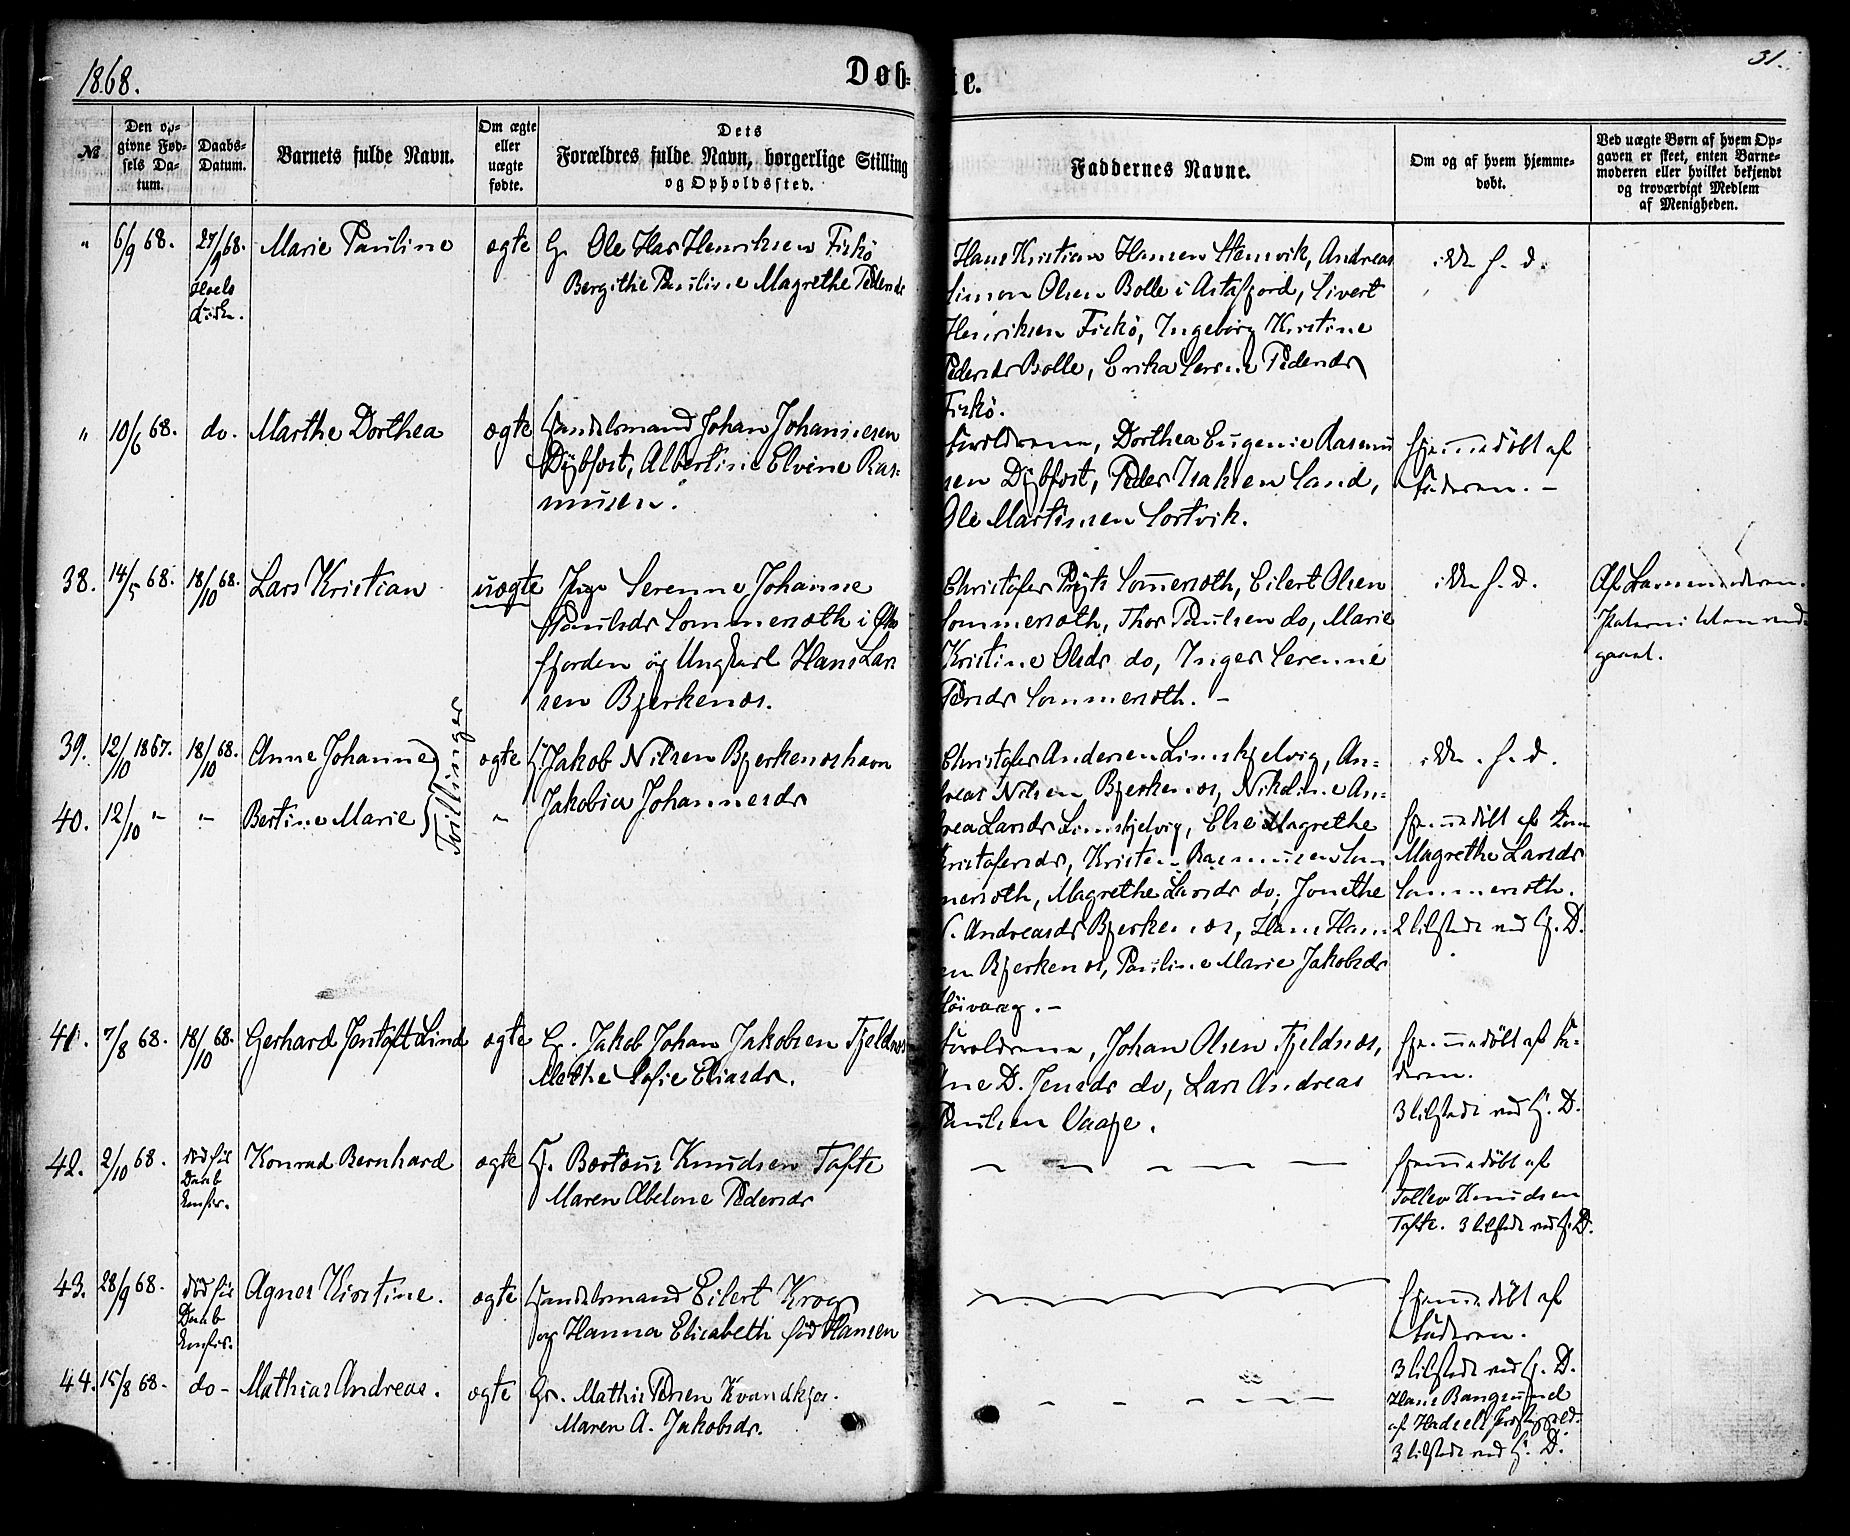 1868.
Døbte.
31.
№
Den opgivne Fødsels Datum.
Daabs-Datum.
Barnets fulde Navn.
Om ægte eller uægte fødte.
Dets Forældres fulde Navn, borgerlige Stilling og Opholdssted.
Faddernes Navne.
Om og af hvem hjemmedøbt.
Ved uægte Børn af hvem Opgaven er skeet, enten Barnemoderen eller hvilket bekjendt og troværdigt Medlem af Menigheden.
" 6/9 68. 27/9 68. Marie Pauline ægte G. Ole Hans Henriksen Fiskø
Bergithe Pauline Magrethe Pedersdr
Hans Kristian Hansen Stensvik, Andreas
Simon Olsen Bolle i Astafjord, Sivert
Henriksen Fiskø, Ingeborg Kristine
Pedersdr Bolle, Erika Serine Pedersdr
Fiskø.
ikke h. d.
" 10/6 68. do. Marthe Dorthea ægte Handelsmand Johan Johannesen
Dybfest, Albertine Elvine Ras-
mussen.
Forældrene, Dorthea Eugenie Rasmus
sen Dybfest, Peder Isaksen Sand,
Ole Martinsen Sortvik.
Hjemmedøbt af
Faderen. -
38. 14/5 68. 18/10 68. Lars Kristian uægte Pige Serenne Johanne
Paulsdr Sommerseth i
fjorden og Ungkarl Hans Lar
sen Bjerkenæs.
Christofer Sommerseth, Eilert Olsen
Sommerseth, Thor Paulsen do, Marie
Kristine Olsdr do, Inger Serenne
Pedersdr Sommerseth. -
ikke h. d.
Af Barnemoderen.
gaaet.
39. 12/10 1867. 18/10 68. Anne Johanne ægte Jakob Nilsen Bjerkenæshavn
Jakobia Johannesdr
40. 12/10 " " Bertine Marie "
Tvillinger
Christofer Andersen Linskjelvig, An-
dreas Nilsen Bjerkenæs, Nikoline An-
drea Larsdr Linskjelvig, Else Magrethe
Kristofersdr, Kristen Rasmussen Som
merseth, Magrethe Larsdr do, Jonethe
Andreasdr Bjerkenæs, Hans Han
sen Bjerkenæs, Pauline Marie Jakobsdr
Høivaag. -
ikke h. d.
Hjemmedøbt af
Magrethe Larsdr
Sommerseth.
2 tilstede ved Hj. D.
41. 7/8 68. 18/10 68. Gerhard Jentoft Lind ægte G. Jakob Johan Jakobsen Fjeldnæs
Mathe Sofie Eliasdr.
Forældrene, Johan Olsen Fjeldnæs,
Ane D. Jensdr do, Lars Andreas
Paulsen Vaage.
Hjemmedøbt af Fa-
deren.
3 tilstede ved Hj. D.
42. 2/10 68. død før
Daab
Konrad Bernhard ægte Bertæus Knudsen Tofte
Maren Abelone Pedersdr
Hjemmedøbt af
Tollev Knudsen
Tofte. 3 tilstede ved Hj. D.
43. 28/9 68. død før
Daab
Agnes Kirstine. ægte Handelsmand Eilert Krog
og Hanna Elisabeth fød Hansen
Hjemmedøbt af
Faderen.
3 tilstede ved Hj. D.
44. 15/8 68. do - Mathias Andreas. ægte G. Mathis Pedersen Kvandkjos.
Maren A. Jakobsdr.
Hans Bangsund
af Hadsels Præstegjeld.
3 tilstede ved Hj. D.